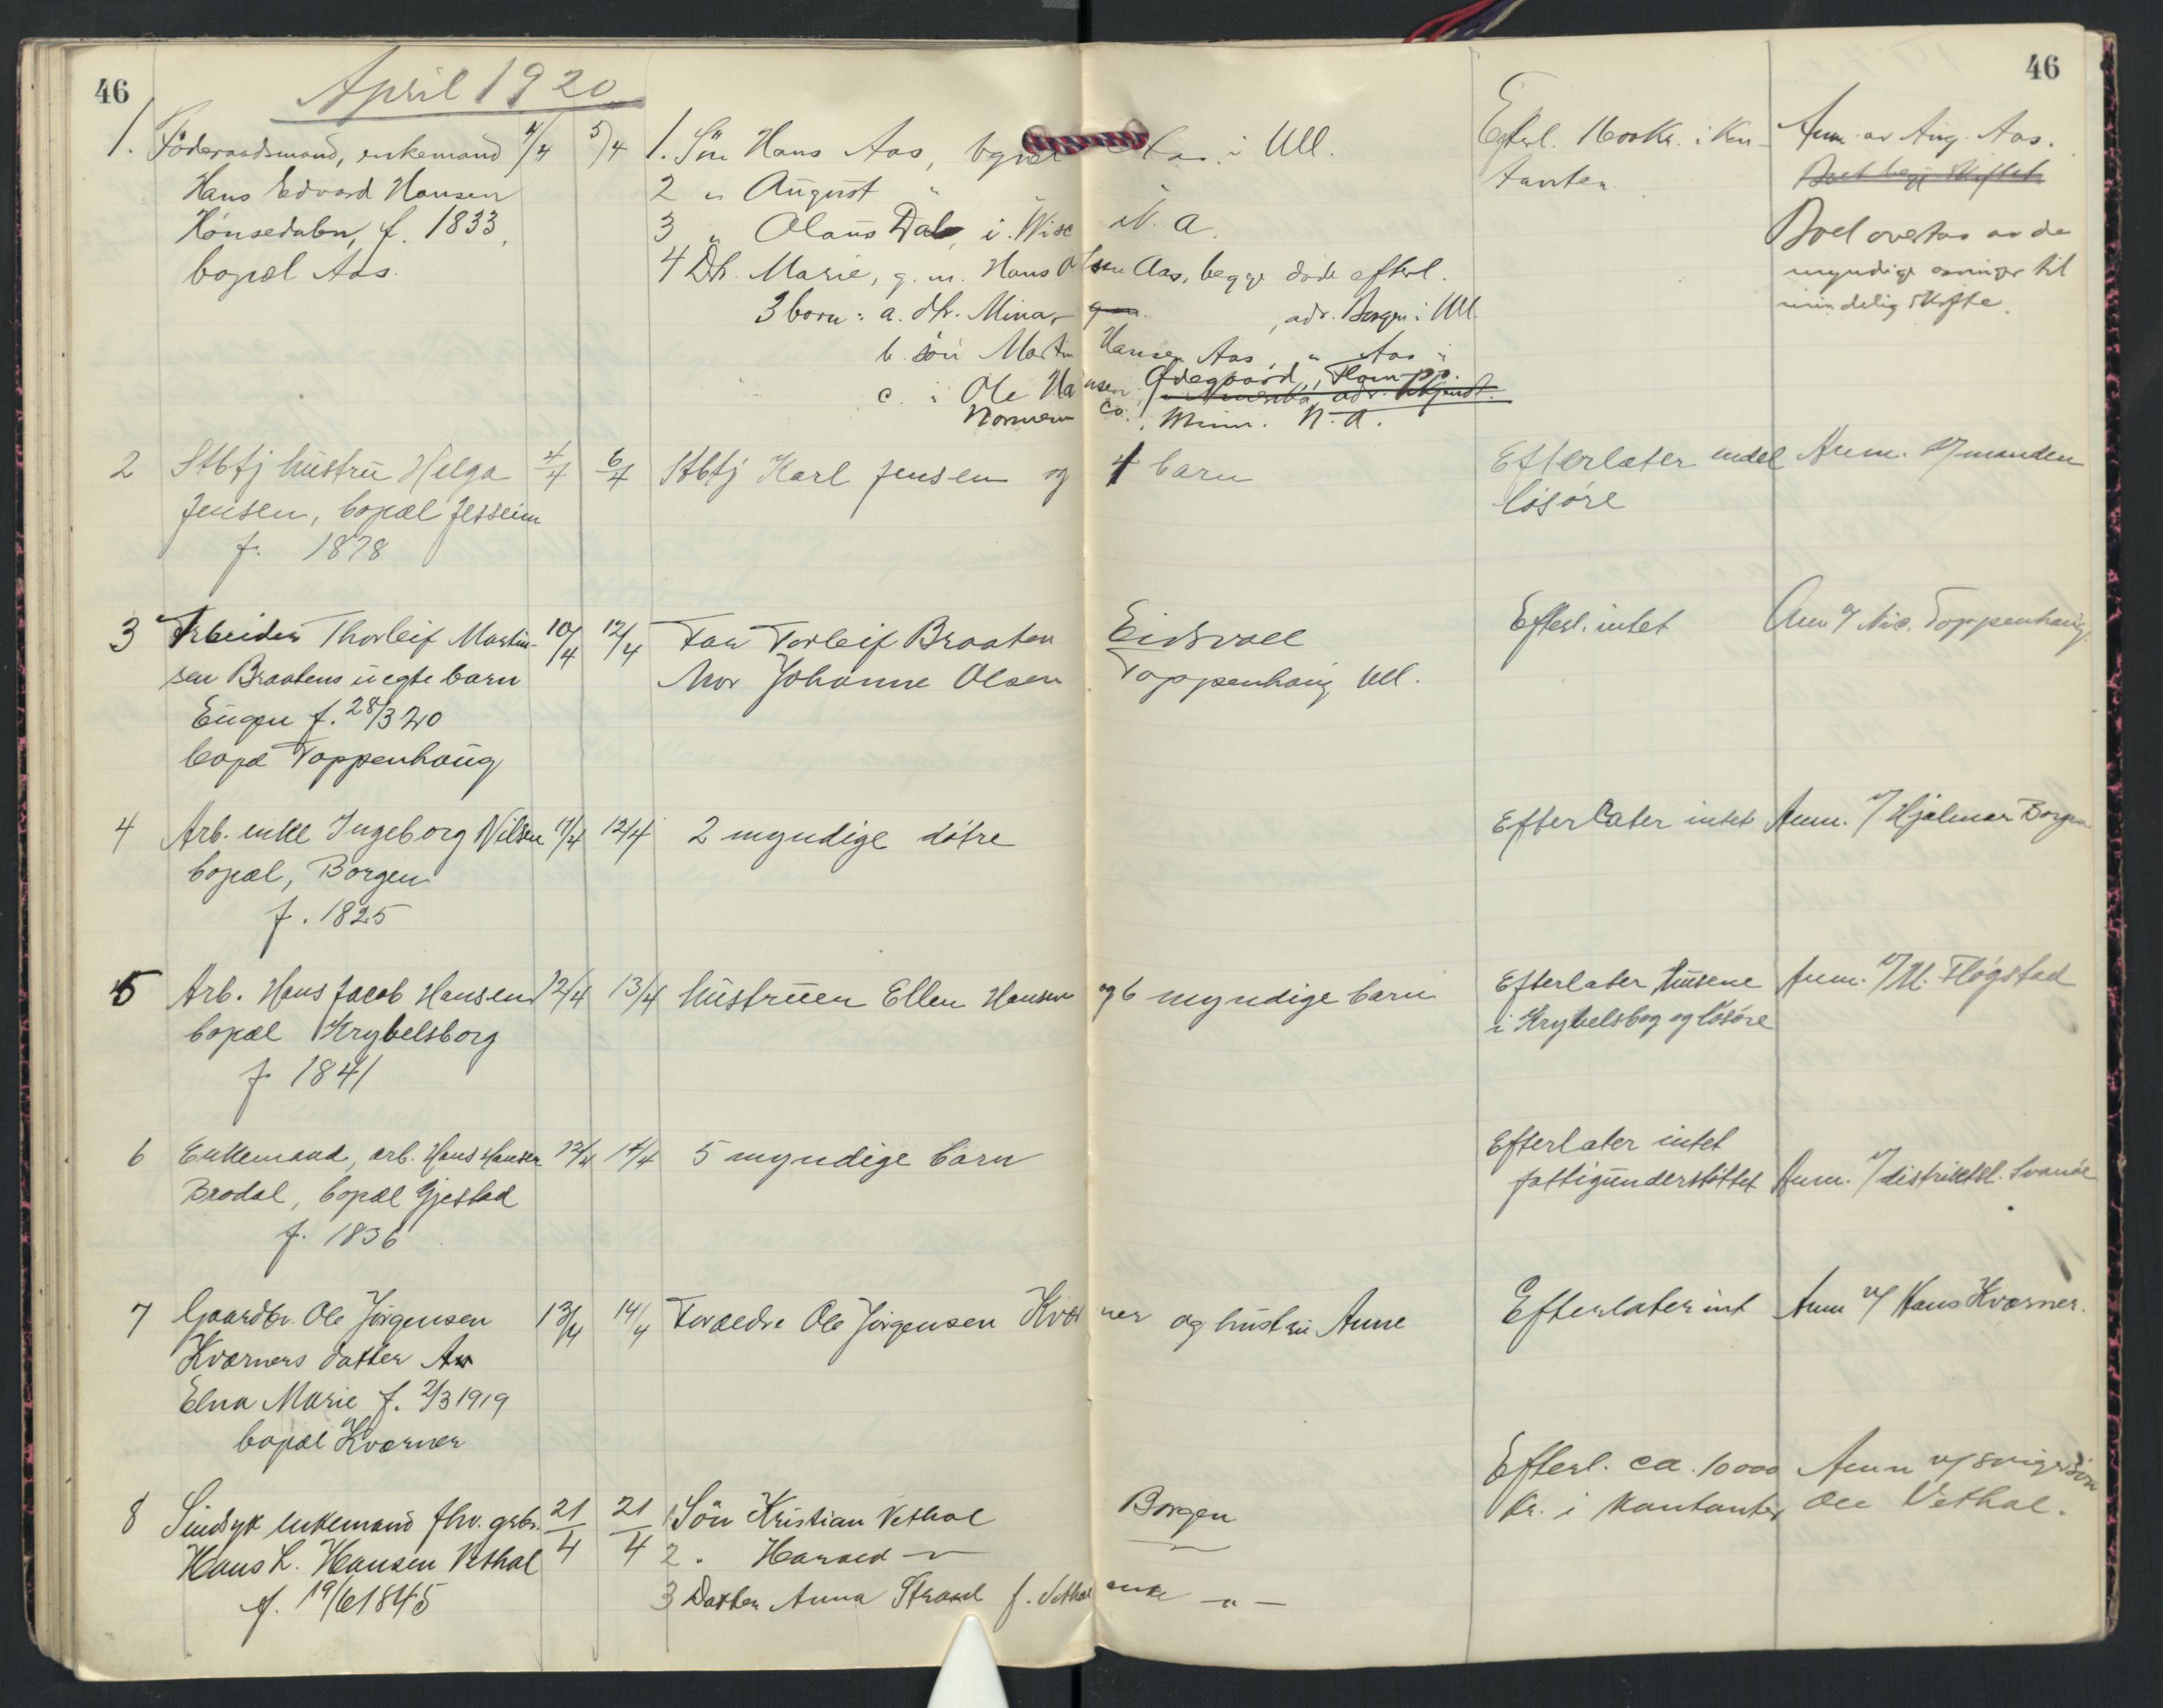 46
April 1920
46
1. Föderaadsmand, enkemand 4/4 5/4 1. Sön Hans Aas, i Ull. Efterl. 1600 Kr. i Kon- Anm. av Aug. Aas.
Hans Edvard Hansen 2 " August " " tanter.
Hönsedalen, f. 1833, 3 " Olaus Dal, i Wisc N. A. Boet overtas av de
bopæl Aas. 4 Dtr. Marie, g. m. Hans Olsen Aas, begge döde efterl. myndige arvinger til
3 born: a. dtr. Mina, adr. Borgen i Ull. mindelig skifte.
b. sön Martin Hansen Aas, " Aas "
c. " Ole Hansen Ödegaard,
Norman Co., Minn. N. A.
2 Stbtj hustru Helga 4/4 6/4 Stbtj Karl Jensen og 4 barn Efterlater endel Anm. v/ manden
Jensen, bopæl Jessheim lösöre
f. 1878
3 Arbeider Thorleif Martin- 10/4 12/4 Far Torleif Braaten Eidsvoll Efterl. intet Anm v/ Nic. Toppenhaug
sen Braatens uegte barn Mor Johanne Olsen Toppenhaug Ull.
Eugen f. 28/3 20
bopæl Toppenhaug
4 Arb. enke Ingeborg Nilsen 11/4 12/4 2 myndige dötre Efterlater intet Anm. v/ Hjalmar Borgen
bopæl, Borgen
f. 1825
5 Arb. Hans Jacob Hansen 12/4 13/4 hustruen Ellen Hansen og 6 myndige barn Efterlater husene Anm. v/ M. Flögstad
bopæl Krybelsborg i Krybelsborg og lösöre
f 1841
6 Enkemand, arb. Hans Hansen 12/4 14/4 5 myndige barn Efterlater intet
Brodal, bopæl Gjestad fattigunderstöttet Anm. v/ distriktsl. Svanöe
f. 1836
7 Gaardbr. Ole Jörgensen 13/4 14/4 Foreldre Ole Jörgensen Kværner og hustru Anne Efterlater int Anm v/ Hans Kværner.
Kværners datter
Elna Marie f. 2/3 1919
bopæl Kværner
8 Sindsyk enkemand fhv. grbr. 21/4 21/4 1 Sön Kristian Vethal Borgen Efterl. ca. 10000 Anm v/ svigersön
Hans L. Hansen Vethal 2 " Harald — — kr. i kontanter Ole Vethal.
f. 19/6 1845 3 Datter Anna Strand f. Vethal enke — " —